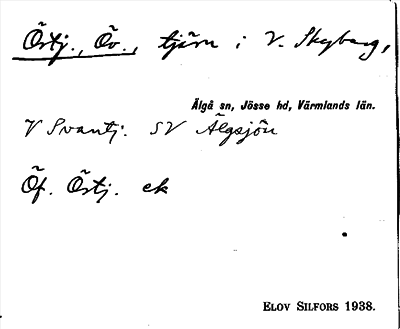 Östj., Öv., tjärn i V. Skyberg,
Älgå sn, Jösse hd, Värmlands län.
V Svantj. SV Älgsjön
Öf. Östj. ek
ELOV SILFORS 1938.